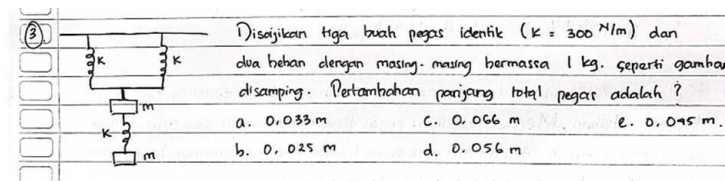 3 Disajikan tiga buah pegas identik (K = 300 N/m) dan
K K dua beban dengan masing-masing bermassa 1 kg. seperti gambar
m disamping. Pertambahan panjang total pegas adalah ?
K a. 0.033 m c. 0.066 m e. 0.045 m.
m b. 0.025 m d. 0.056 m